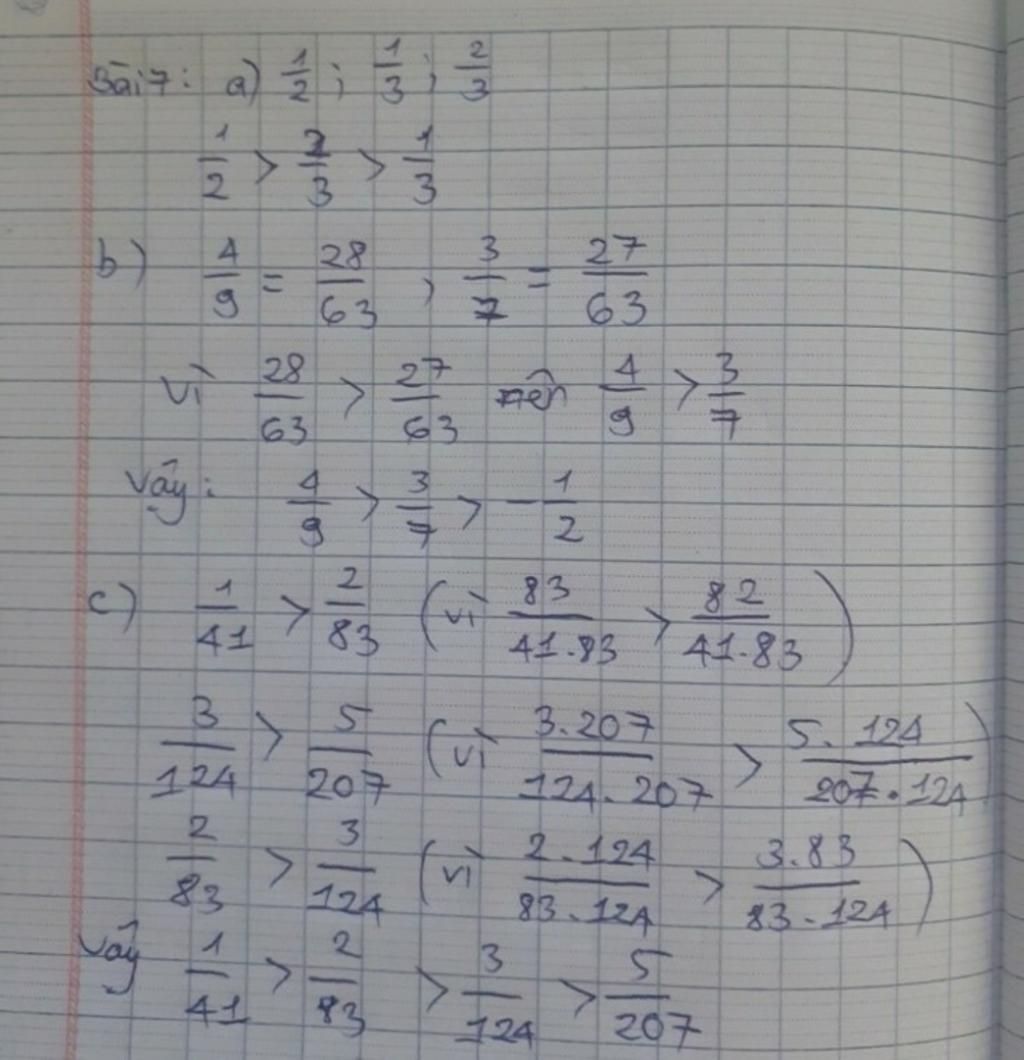 Bài 7: a) 1/2 ; 1/3 ; 2/3
1/2 > 2/3 > 1/3
b) 4/9 = 28/63 , 3/7 = 27/63
Vì 28/63 > 27/63 nên 4/9 > 3/7
Vậy: 4/9 > 3/7 > -1/2
c) 1/41 > 2/83 (vì 83/41.83 > 82/41.83)
3/124 > 5/207 (vì 3.207/124.207 > 5.124/207.124)
2/83 > 3/124 (vì 2.124/83.124 > 3.83/83.124)
Vậy 1/41 > 2/83 > 3/124 > 5/207